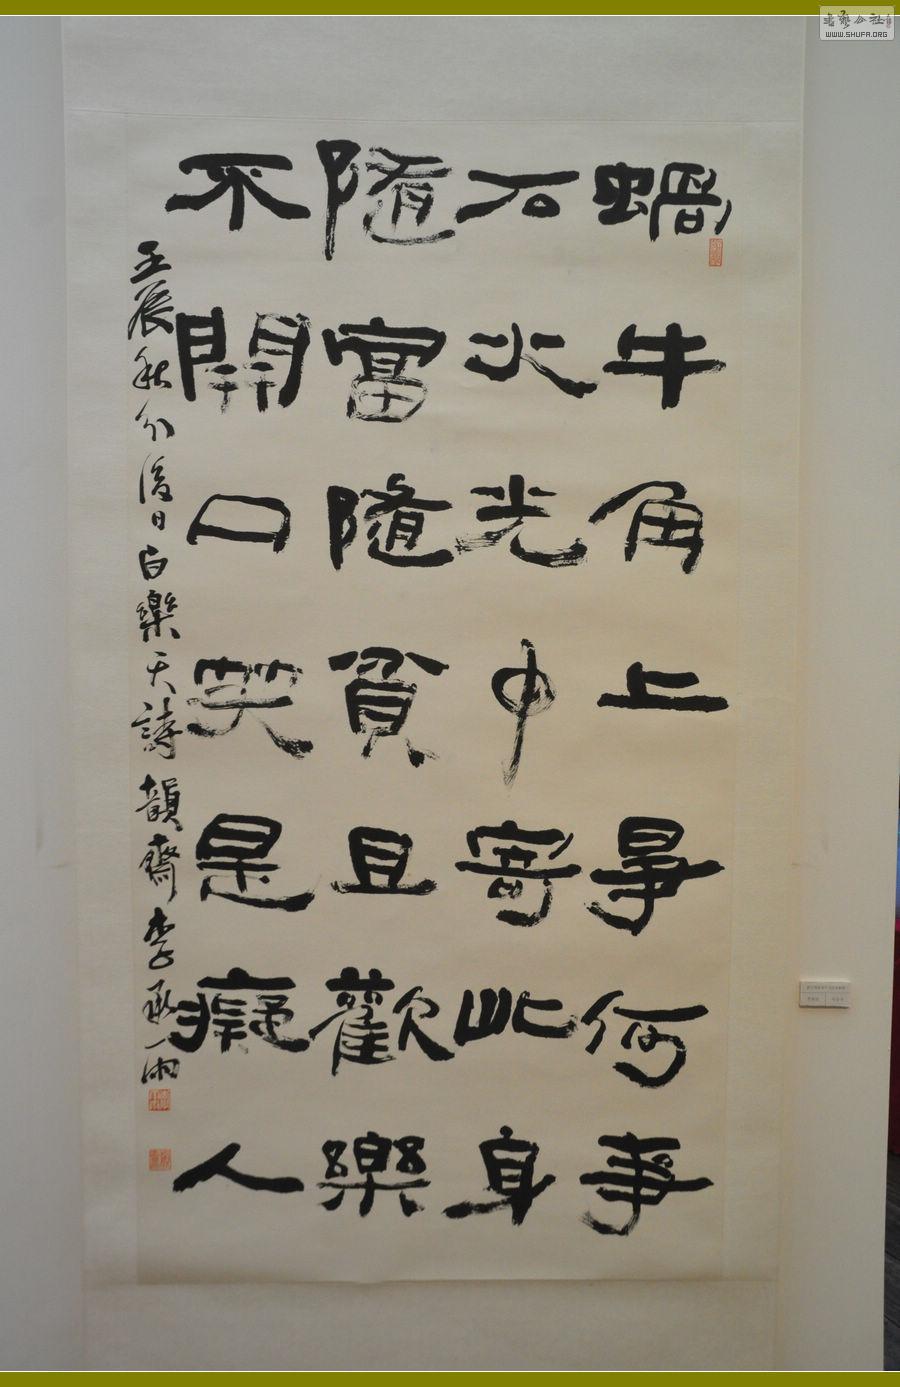 蝸牛角上爭何事
石火光中寄此身
隨富隨貧且歡樂
不開口笑是癡人
壬辰秋分後日白樂天詩韻齋李承雨
WWW.SHUFA.ORG